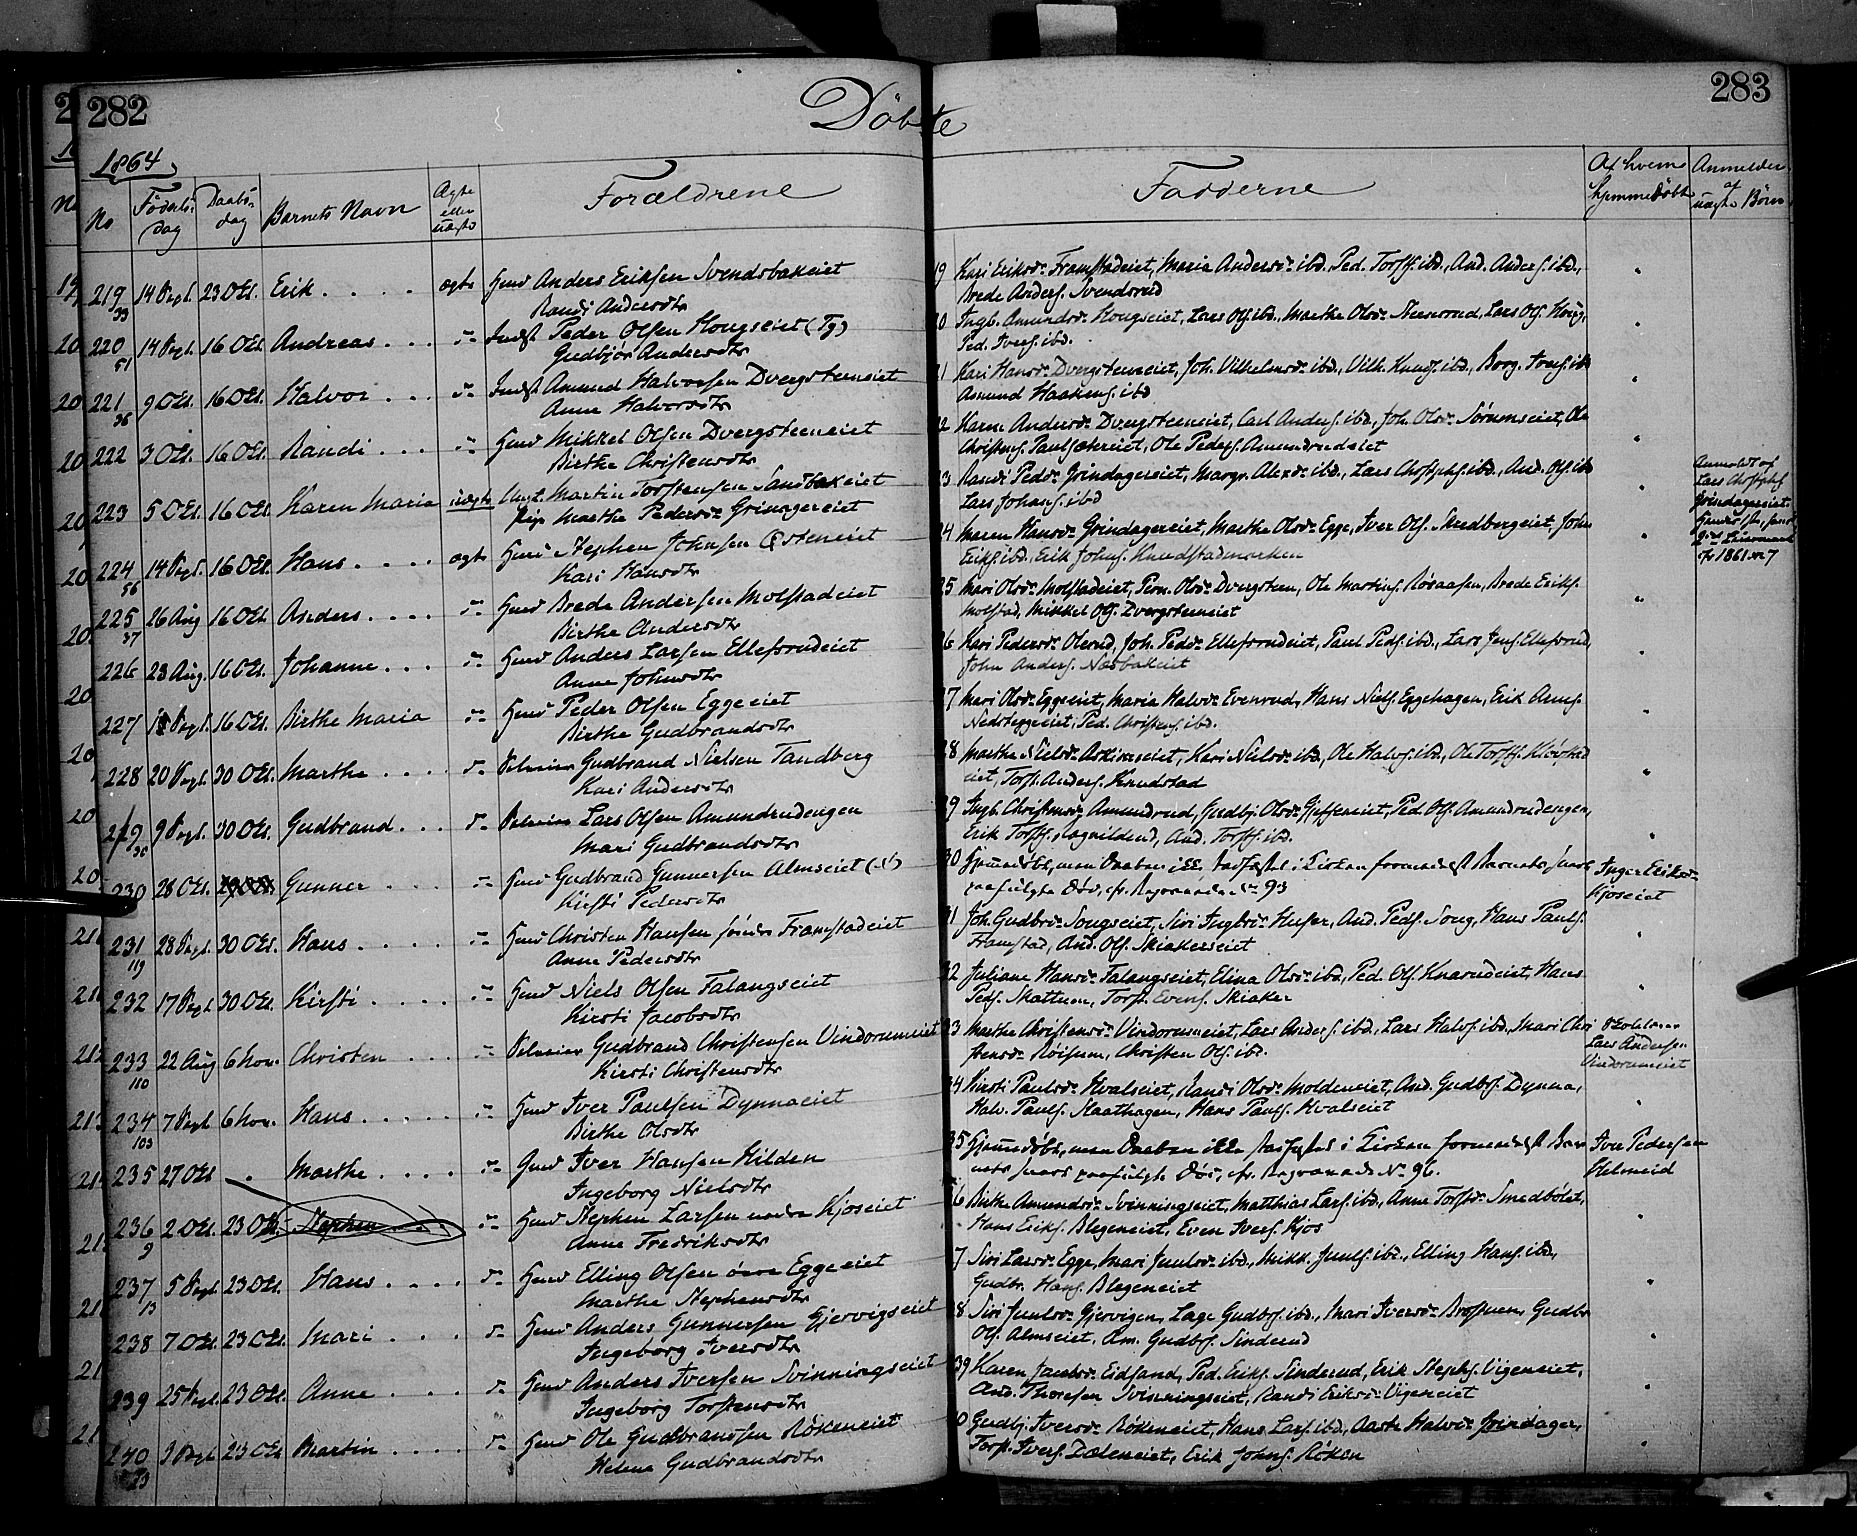 282
283
Döbte
1864
No
Födsels-dag
Daabs-dag
Barnets Navn
Ægte eller uægte
Forældrene
Fadderne
Af hvem hjemmedöbt
Anmelder af uægte Börn
219 14 Sept. 23 Okt. Erik . . . . ægte Gmd Anders Eriksen Svendsbakeiet
33 Randi Andersdtr
19 Kari Eriksdr Framstadeiet, Maria Andersdr ibd. Ped. Torstf. ibd., And. Andersf. ibd.,
Brede Andersf. Svendsrud
220 14 Sept. 16 Okt. Andreas . . . Indst Peder Olsen Hougseiet (Tg)
51 Gudbjör Andersdtr
20 Ingb. Amundsdr Hougseiet, Lars Olsf. ibd., Marthe Olsdr Steensrud, Lars Olsf. Houg,
Ped. Iversf. ibd.
221 9 Okt. 16 Okt. Halvor . . . Indst Amund Halvorsen Dvergsteneiet
36 Anne Halvorsdtr
21 Kari Hansdr Dvergsteneiet, Joh. Vilhelmsdr ibd., Vilh. Knudsf. ibd., Borg. Iversf. ibd
Asmund Haakensf. ibd
222 3 Okt. 16 Okt. Randi . . . Gmd Mikkel Olsen Dvergsteeneiet
Birthe Christensdtr
22 Karen Andersdr Dvergsteeneiet, Carl Andersf. ibd., Joh. Olsdr Sörumseiet, Ole
Christensf. Paulsætereiet, Ole Pedersf. Amundrudeiet
223 5 Okt. 16 Okt. Karen Maria uægte Ungk. Martin Torstensen Sandbakeiet
Pige Marthe Pedersdr Grinagereiet
23 Randi Pedsdr Grindagereiet, Margr. Alexdr ibd., Lars Chrstophf. ibd., And. Olsf. ibd
Lars Johansf. ibd
Anmeldt af
Lars Chrstophf
Grindagereiet.
cfr 1861 No 7
224 14 Sept. 16 Okt. Hans . . . . ægte Gmd Stephen Johnsen Östeneiet
56 Kari Hansdtr
24 Maren Hansdr Grindagereiet, Marthe Olsdr Egge, Iver Olsf. Skredbergeiet, John
Eriksf. ibd., Erik Johnsf. Knudstadmarken
225 26 Aug 16 Okt. Anders . . . . Gmd Brede Andersen Molstadeiet
37 Birthe Andersdtr
25 Mari Olsdr Molstadeiet, Pern. Olsdr Dvergsten, Ole Martinsf. Rösaasen, Brede Eriksf.
Molstad, Mikkel Olsf. Dvergsteneiet
226 23 Aug. 16 Okt. Johanne . . . Gmd Anders Larsen Ellefsrudeiet
Anne Johnsdtr
26 Kari Pedersdr Olerud, Joh. Pedsdr Ellefsrudeiet, Paul Pedsf. ibd., Lars Jensf. Ellefsrud,
John Andersf. Næsbakeiet
227 Sept. 16 Okt. Birthe Maria Gmd Peder Olsen Eggeeiet
Birthe Gudbrandsdtr
27 Mari Olsdr Eggeeiet, Maria Halvdr Evenrud, Hans Nielsf. Eggehagen, Erik Arnesf.
Nedreeggeeiet, Ped. Christensf. ibd.
228 20 Sept. 30 Okt. Marthe . . . . Selveier Gudbrand Nielsen Tandberg
Kari Andersdtr
28 Marthe Nielsdr Askimseiet, Kari Nielsdr ibd., Ole Halvsf. ibd., Ole Torstf. Klöfstad
eiet, Torst. Andersf. Knudstad
229 9 Sept. 30 Okt. Gudbrand . . . Selveier Lars Olsen Amundrudengen
Mari Gudbrandsdtr
29 Ingb. Christensdr Amundrud, Gudbj. Olsdr Gjefseneiet, Ped. Olsf. Amundrudengen,
Erik Torstf. Ragnildrud, And. Torstf. ibd.
230 28 Okt. Gunner . . . . Gmd Gudbrand Gunnersen Almseiet
Kirsti Pedersdtr
30 Hjemdöbt, men Daaben ikke stadfæstet i Kirken formedelst Barnets snart
paafulgte Död, cfr. Begravede No 93
Inger Eriksdr
Kjoseiet
231 28 Sept. 30 Okt. Hans . . . . Gmd Christen Hansen söndre Framstadeiet
119 Anne Pedersdtr
31 Joh. Gudbrdr Sougseiet, Siri Ingbrdr Hufer, And. Pedsf. Soug, Hans Paulsf.
Framstad, And. Olsf. Skiakerseiet
232 17 Sept 30 Okt. Kirsti . . . . Gmd Niels Olsen Falangseiet
Kirsti Jacobsdtr
32 Juliane Hansdr Falangseiet, Elina Olsdr ibd., Ped. Olsf. Knarrudeiet, Hans
Pedsf. Skattum, Torst. Evensf. Skiaker
233 22 Aug 6 Nov. Christen . . . Selveier Gudbrand Christensen Vindorumeiet
110 Kirsti Christensdtr
33 Marthe Christensdr Vindorumeiet, Lars Andersf. ibd., Lars Halvsf. ibd., Mari Chri
stensdr Röisum, Christen Olsf. ibd.
Lars Andersen
Vindorumeiet
234 7 Sept 6 Nov. Hans . . . . . Gmd Iver Paulsen Dynnaeiet
103 Birthe Olsdtr
34 Kirsti Paulsdr Hvalseiet, Randi Olsdr Moldeneiet, And. Gudbrf. Dynna,
Halv. Paulsf. Raathagen, Hans Paulsf. Hvalseiet
235 27 Okt Marthe . . . . Gmd Iver Hansen Hilden
Ingeborg Nielsdtr
35 Hjemdöbt, men Daaben ikke stadfæstet i Kirken formedelst Bar
nets snart paafulgte Död, cfr. Begravede No 96.
Iver Pedersen
Helmeid
236 2 Okt. 23 Okt. Stephen Gmd Stephen Larsen nedre Kjoseiet
9 Anne Fredriksdtr
36 Birthe Amundsdr Svinningseiet, Matthias Larsf. ibd., Anne Torstdr Smedbölet,
Hans Eriksf. Blegeneiet, Even Iversf. Kjos
237 5 Sept 23 Okt. Hans . . . . Gmd Elling Olsen övre Eggeeiet
13 Marthe Stephensdtr
37 Siri Larsdr Egge, Mari Juulsdr ibd., Mikk. Juulsf. ibd., Elling Hansf. ibd.,
Gudbr. Hansf. Blegeneiet
238 7 Okt. 23 Okt. Mari . . . . Gmd Anders Gunnersen Gjervigseiet
Ingeborg Iversdtr
38 Siri Juulsdr Gjervigen, Lage Gudbrsf. ibd., Mari Iversdr Brostuen, Gudbr
Olsf. Almseiet, Am. Gudbrf. Sinderud
239 25 Sept. 23 Okt. Anne . . . . Gmd Anders Iversen Svinningseiet
Ingeborg Torstensdtr
39 Karen Jacobsdr Eidsand, Ped. Eriksf. Sinderud, Erik Stephsf. Vigeneiet,
And. Thoresen Svinningseiet, Randi Eriksdr Vigeneiet
240 3 Sept 23 Okt Martin . . . . Gmd Ole Gudbrandsen Rökeneiet
73 Helene Gudbrandsdtr
40 Gudbj. Iversdr Rökeneiet, Hans Larsf. ibd., Aaste Halvdr Grindager,
Torst. Iversf. Dæleneiet, Erik Johnsf. Röken